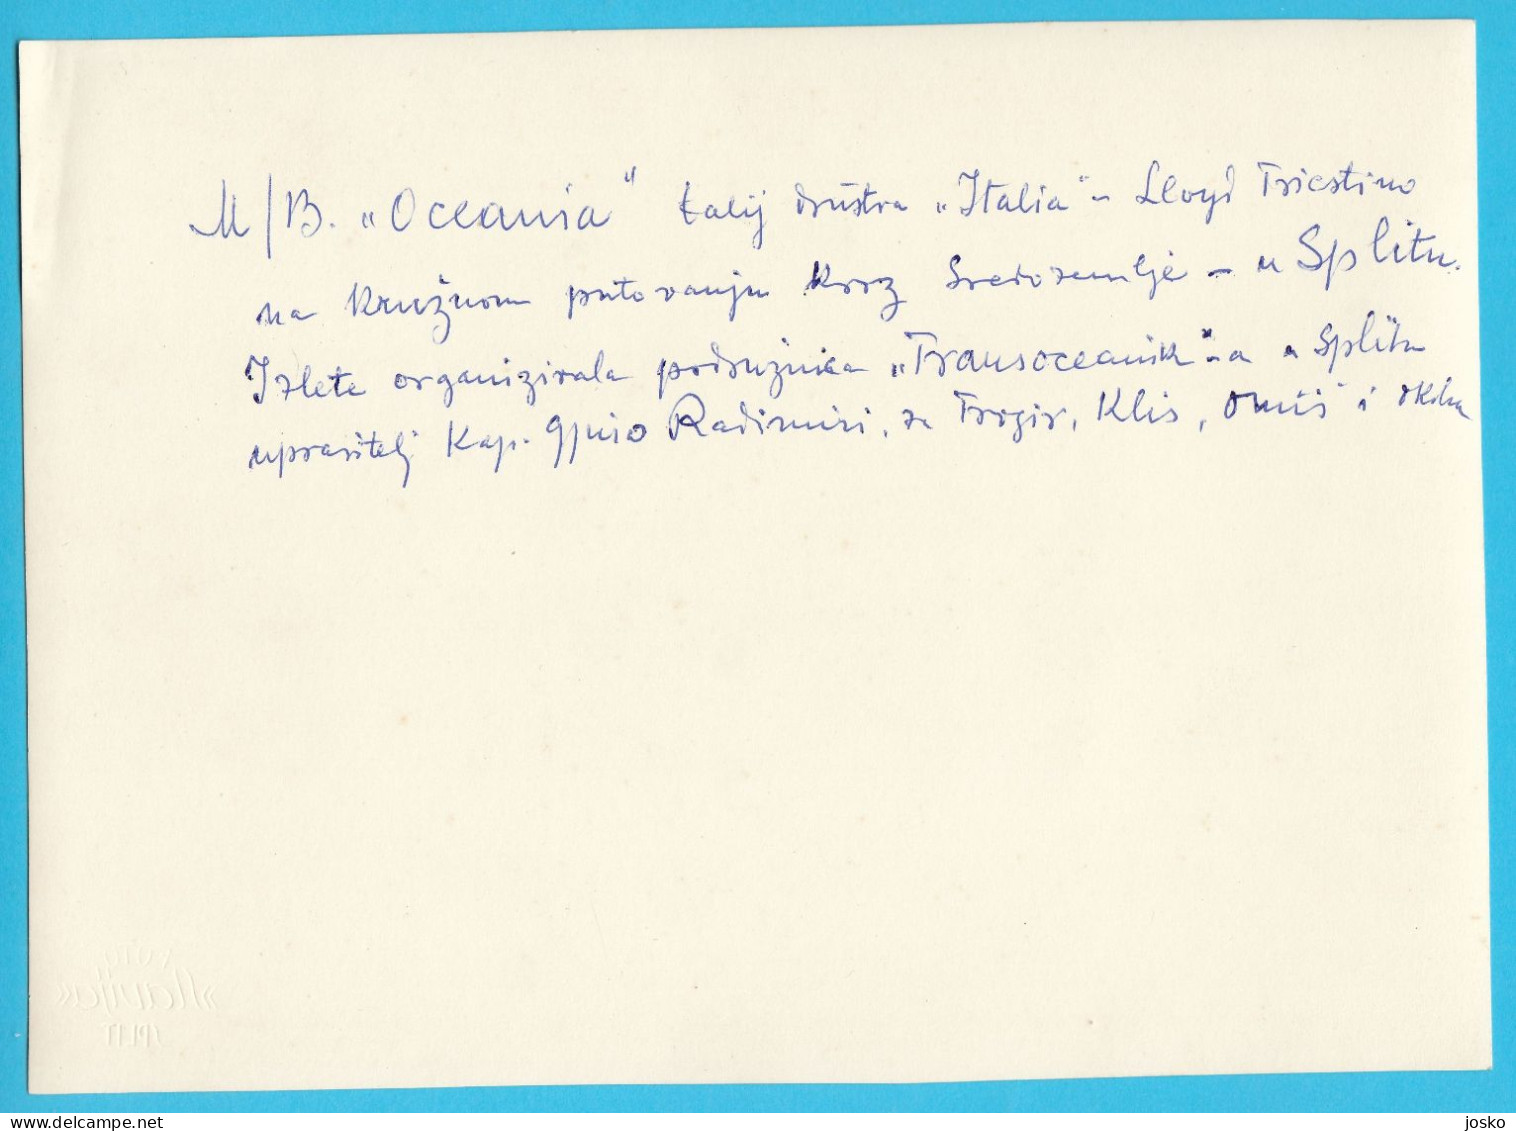 M/B. „Oceania" talij društva „Italia" - Lloyd Triestino
na kružnom putovanju kroz Sredozemlje - u Splitu.
Izlete organizirala podružnica „Transoceanik"-a u Splitu
upravitelj Kap. Gjuro Radimiri, za Trogir, Klis, Omiš i
SPLIT
josko